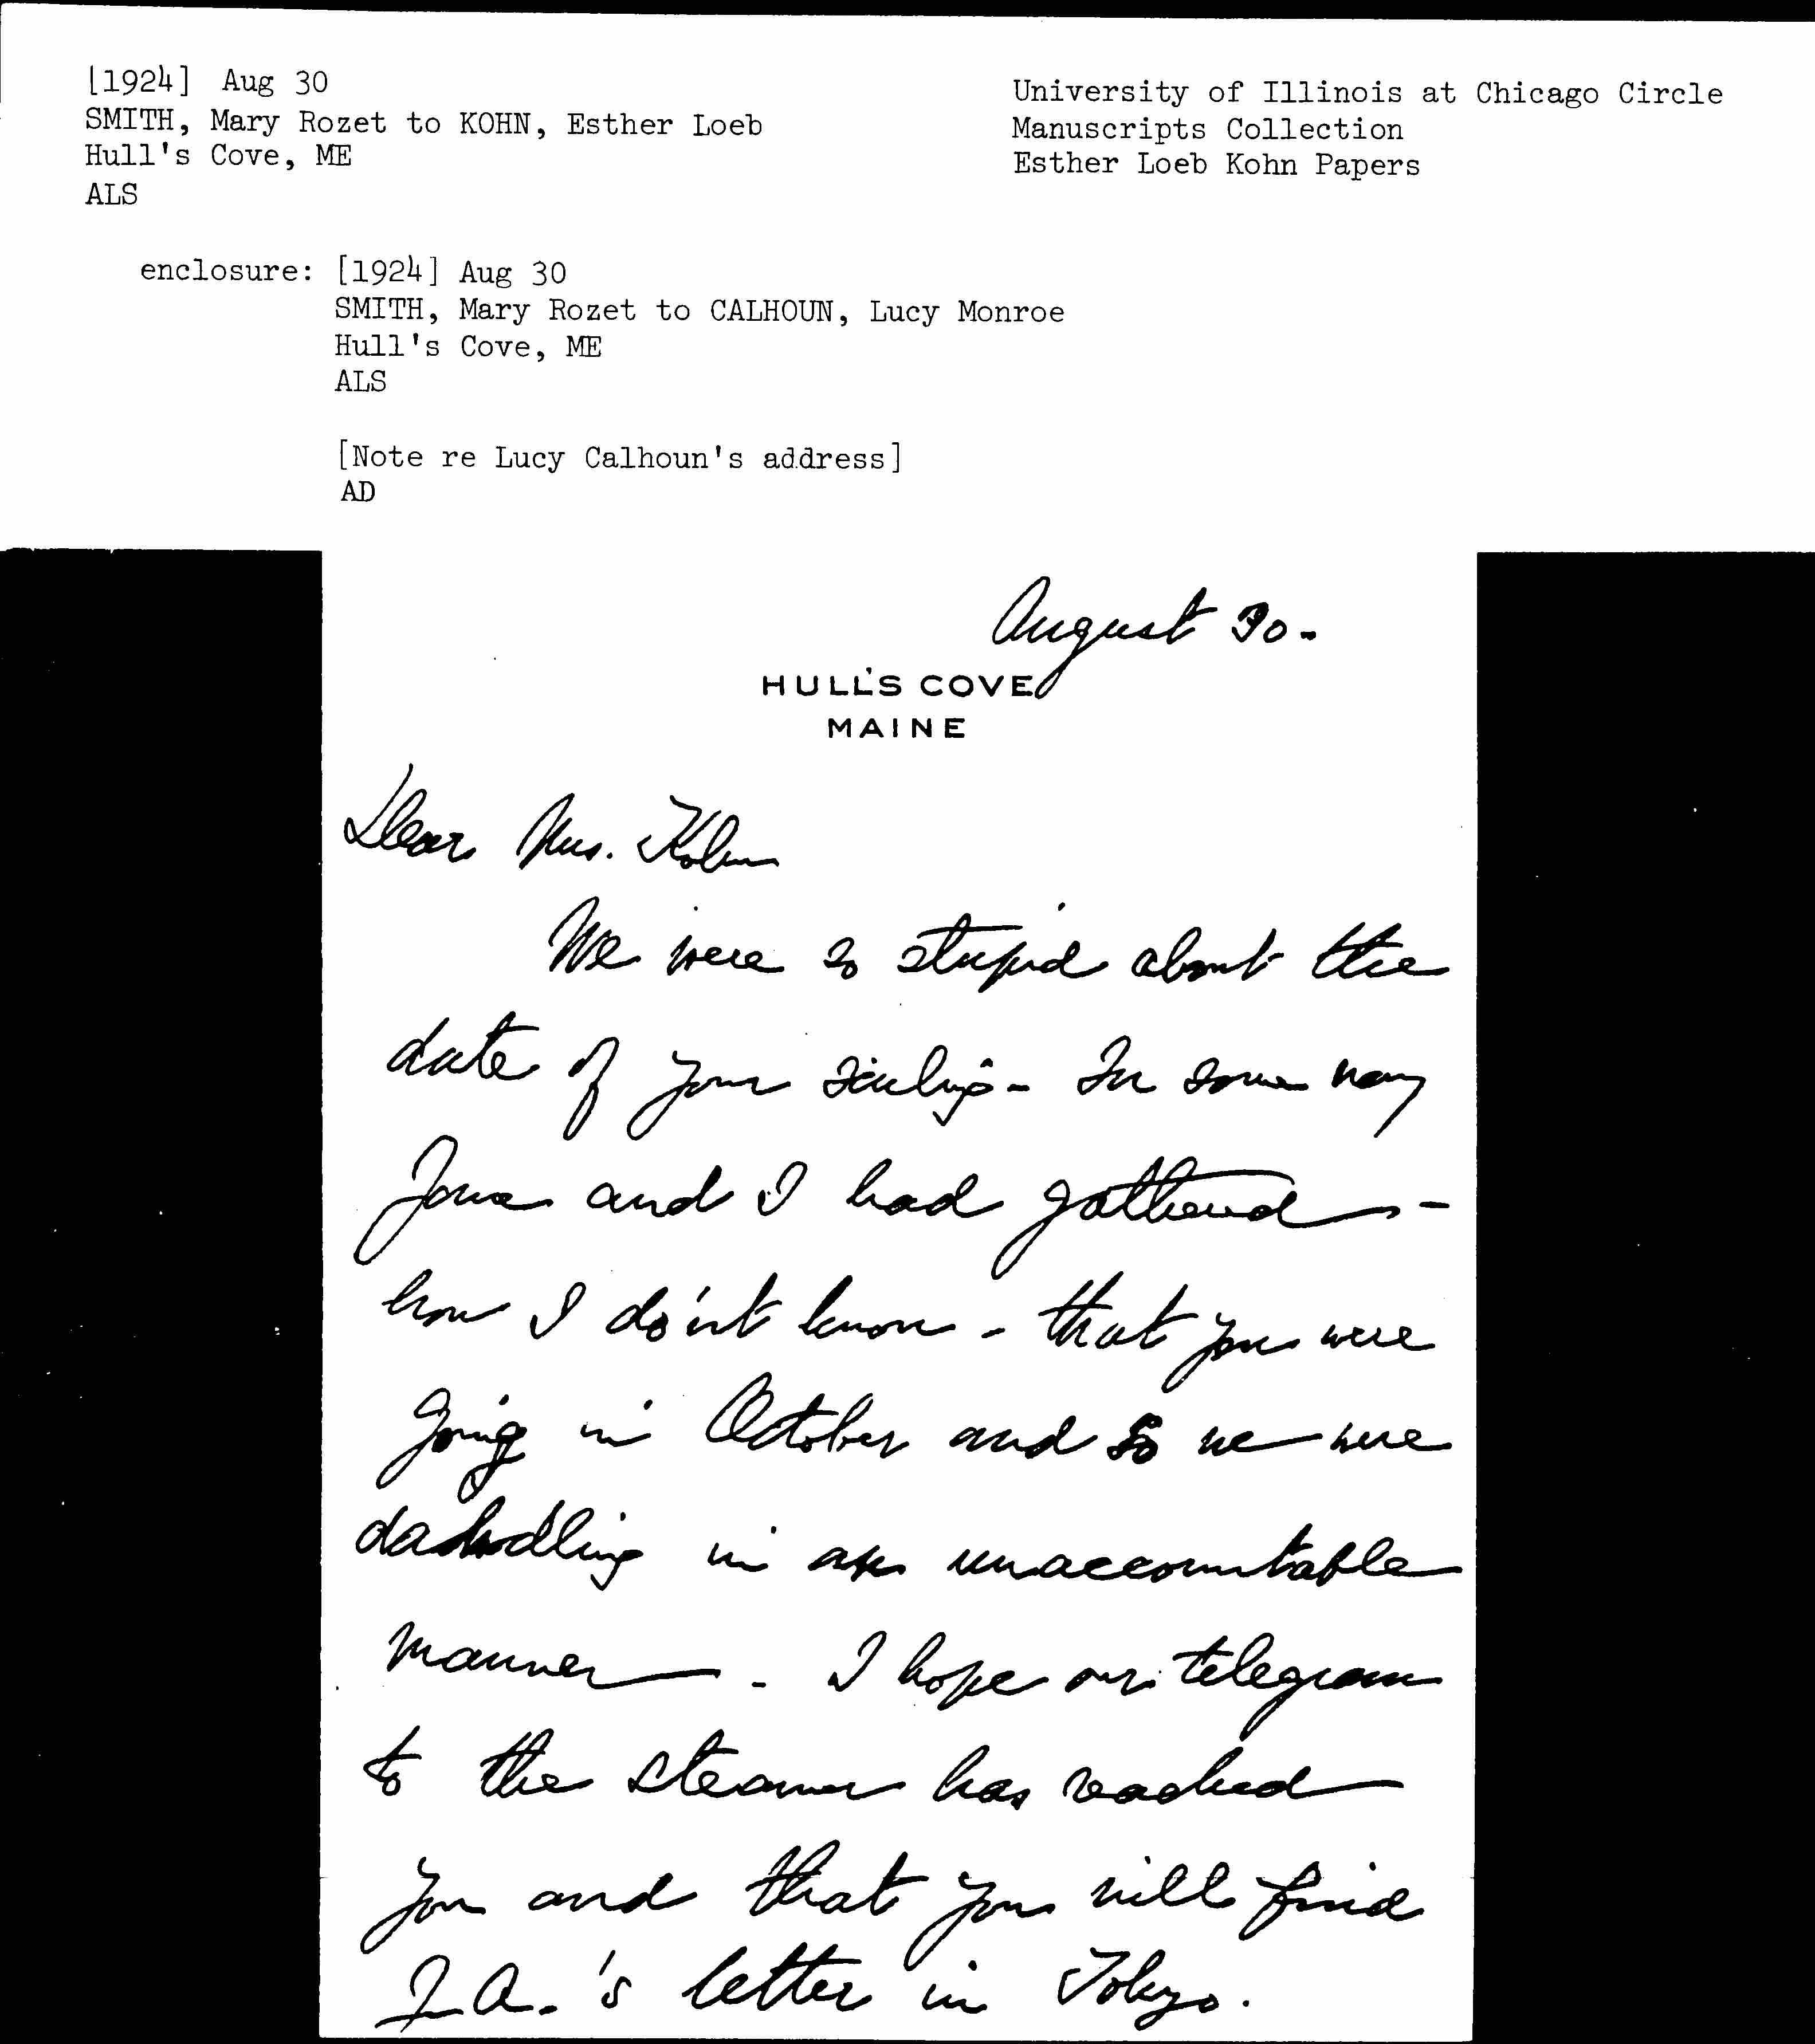 [1924] Aug 30
SMITH, Mary Rozet to KOHN, Esther Loeb
Hull's Cove, ME
ALS
University of Illinois at Chicago Circle
Manuscripts Collection
Esther Loeb Kohn Papers
enclosure: [1924] Aug 30
SMITH, Mary Rozet to CALHOUN, Lucy Monroe
Hull's Cove, ME
ALS
[Note re Lucy Calhoun's address]
AD
August 30-
HULL'S COVE
MAINE
Dear Mrs. Kohn
We were so stupid about the
date of your sailing- In some way
Jane and I had gathered -
how I do'nt know - that you were
going in October and so we were
dawdling in an unaccountable
manner - I hope our telegram
to the steamer has reached
you and that you will find
J.A.'s letter in Tokyo.